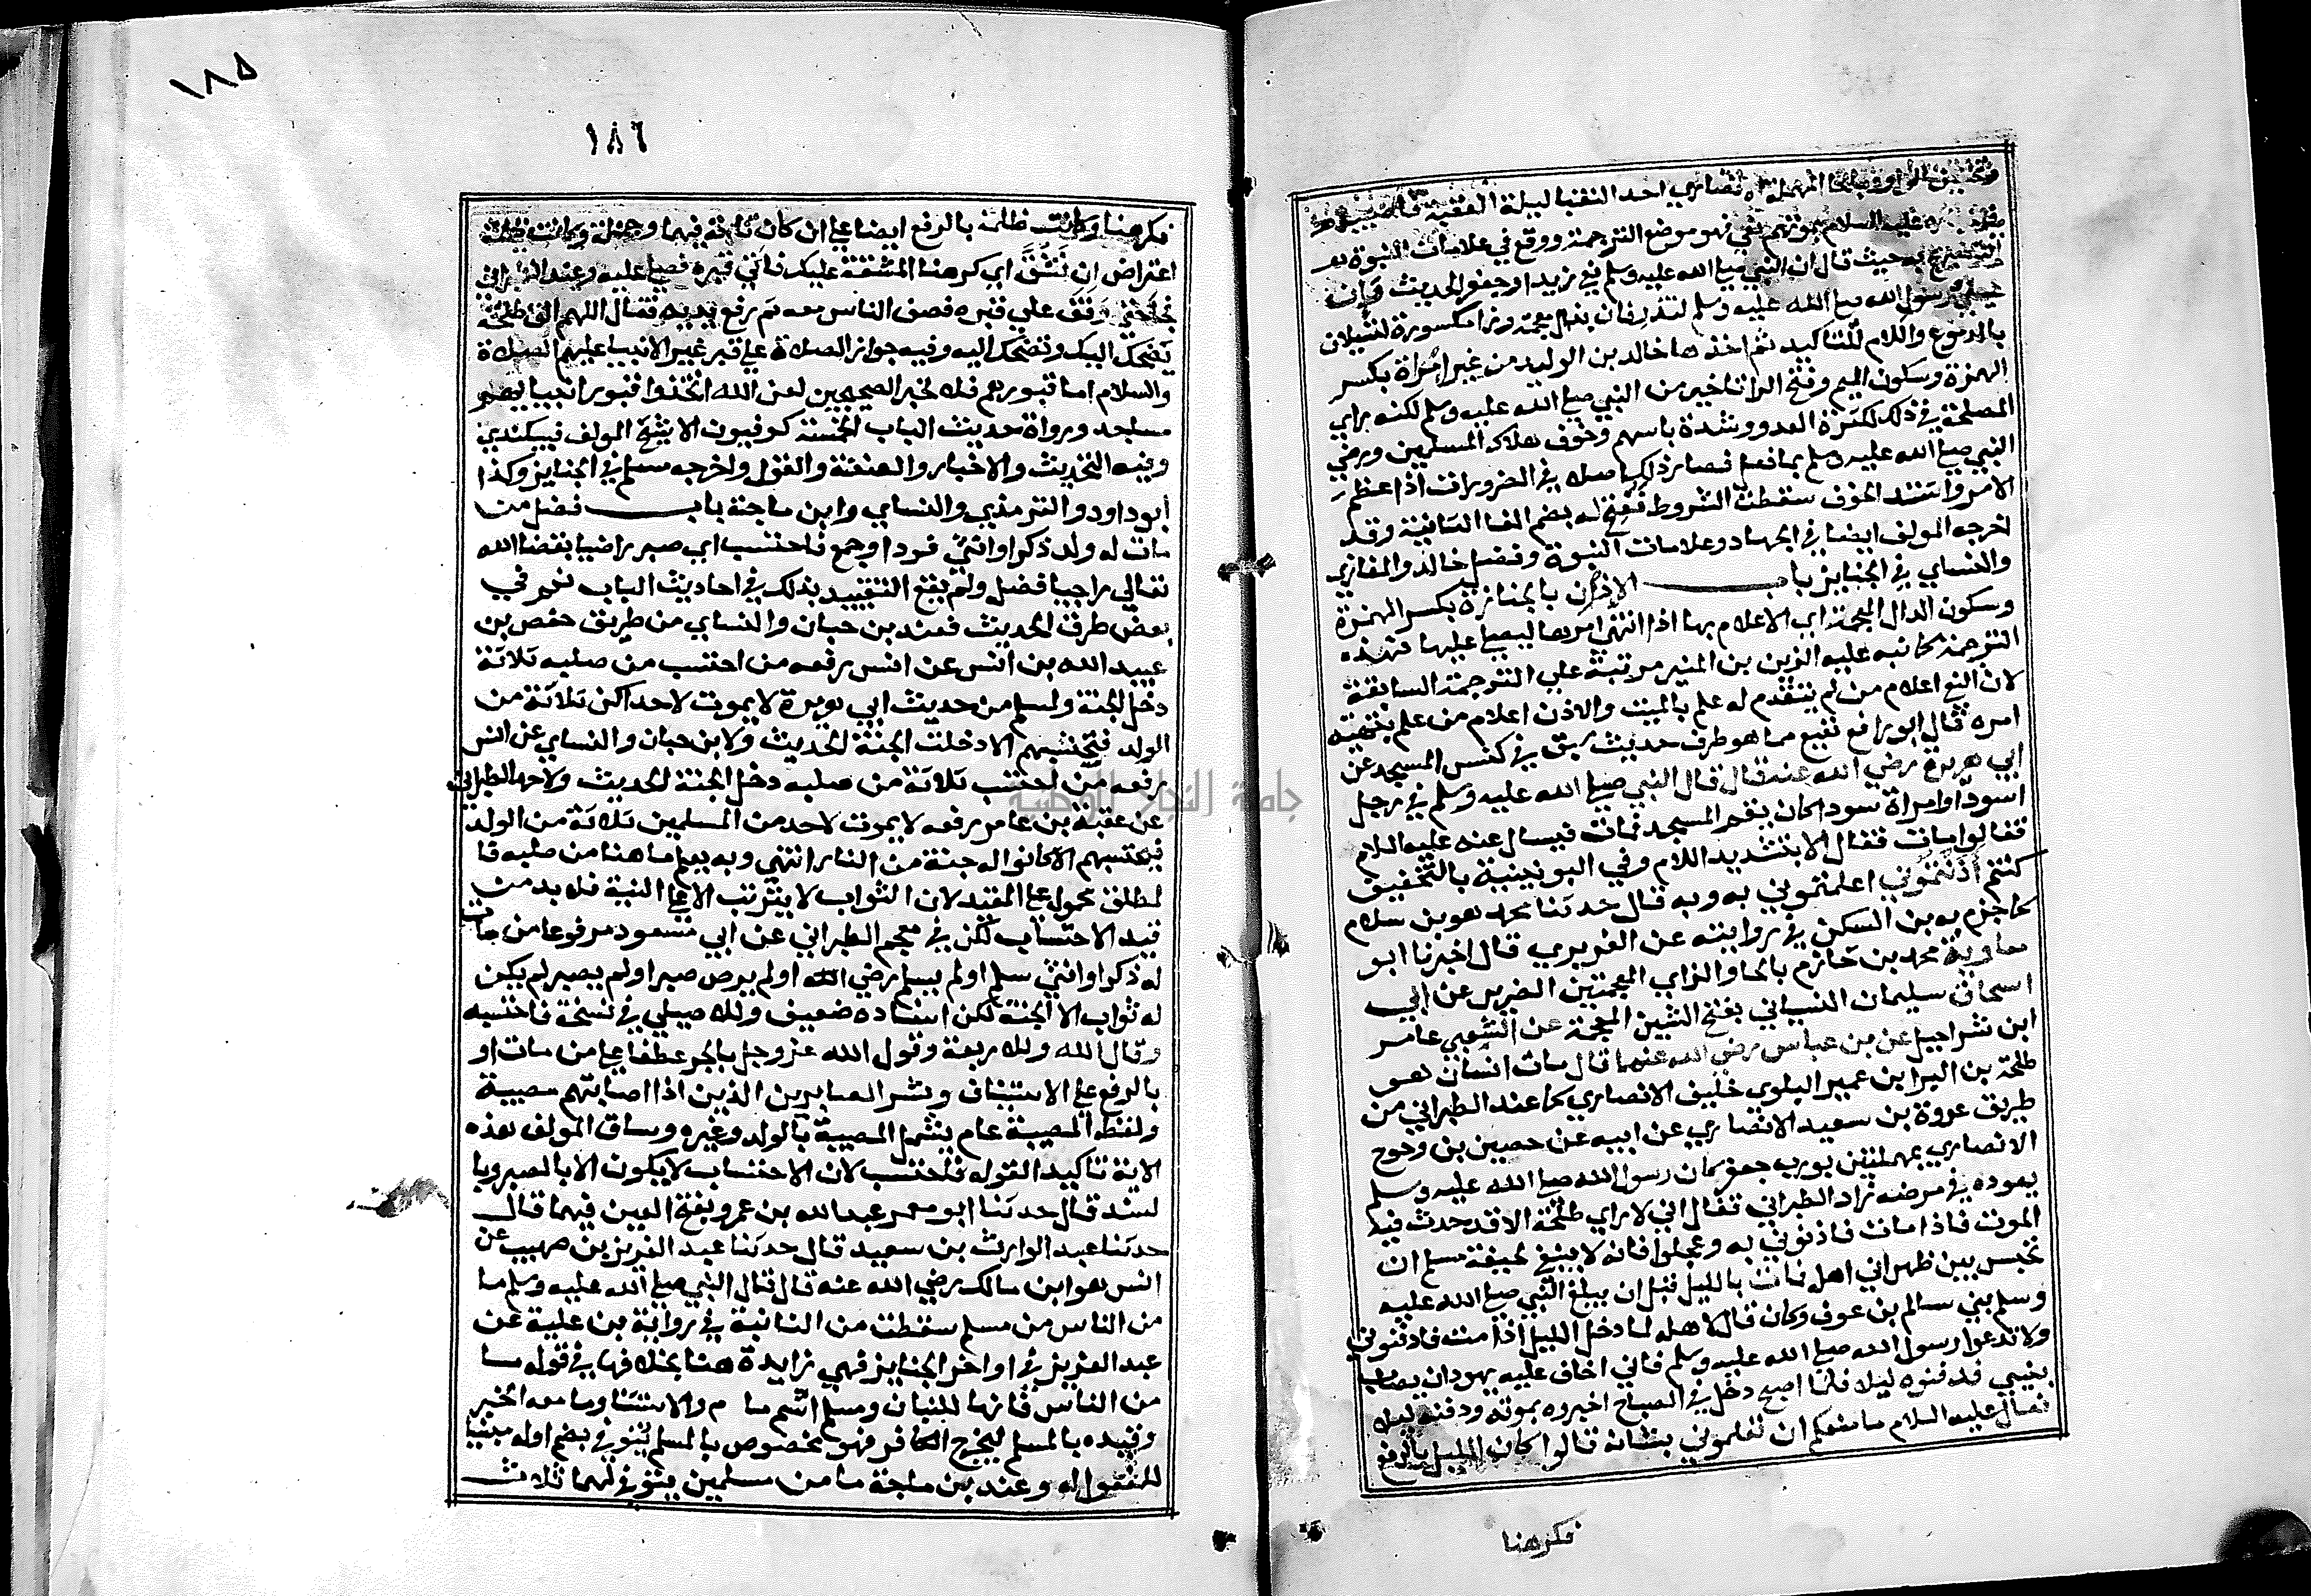 وتخفيف الواو وبالحا المهملة الانصاري احد النقبا ليلة العقبة فاصيب
عليه السلام بموتهم نعي فهو موضع الترجمة ووقع في علامات النبوة
التصريح به حيث قال ان النبي صلى الله عليه وسلم نعي زيدا وجعفر الحديث وان
عيني رسول الله صلى الله عليه وسلم لتذرفان بذال معجمة ورا مكسورة لتسيلان
بالدموع واللام للتاكيد ثم اخذها خالد بن الوليد من غير امراة بكسر
الهمزة وسكون الميم وفتح الرا تاخير من النبي صلى الله عليه وسلم لكنه راي
المصلحة في ذلك لكثرة العدو وشدة باسهم وخوف هلاك المسلمين ورضي
النبي صلى الله عليه وسلم بما فعل فصار ذلك اصلا في الضرورات اذا عظم
الامر واشتد الخوف سقطت الشروط ففتح له بضم الفا الثانية وقد
اخرجه المولف ايضا في الجهاد وعلامات النبوة وفضل خالد والمغازي
والنساي في الجنايز باب الاذن بالجنازة بكسر الهمزة
وسكون الذال المعجمة اي الاعلام بها اذا انتهى امرها ليصلى عليها فهذه
الترجمة كما نبه عليه الزين بن المنير مرتبة على الترجمة السابقة
لان النعي اعلام من لم يتقدم له علم بالميت والاذن اعلام من علم بتهيئة
امره قال ابو رافع نفيع مما هو طرف حديث سبق في كنس المسجد عن
ابي هريرة رضي الله عنه قال قال النبي صلى الله عليه وسلم في رجل
اسود او امراة سودا كان يقم المسجد فمات فيسال عنه عليه السلام
فقالوا مات فقال الا بتشديد اللام وفي اليونينية بالتخفيف
كنتم اذنتموني اعلمتموني به وبه قال حدثنا محمد هو بن سلام
كما جزم به بن السكن في روايته عن الفربري قال اخبرنا ابو
معاوية محمد بن خازم بالخا والزاي المعجمتين الضرير عن ابي
اسحاق سليمان الشيباني بفتح الشين المعجمة عن الشعبي عامر
ابن شراحيل عن بن عباس رضي الله عنهما قال مات انسان هو
طلحة بن البرا بن عمير البلوي حليف الانصاري كما عند الطبراني من
طريق عروة بن سعيد الانصاري عن ابيه عن حصين بن وحوح
الانصاري بمهملتين بورن جعفر كان رسول الله صلى الله عليه وسلم
يعوده في مرضه زاد الطبراني فقال اني لا راي طلحة الا قد حدث فيه
الموت فاذا مات فاذنوني به وعجلوا فانه لا ينبغي لجيفة مسلم ان
تحبس بين ظهراني اهله فمات بالليل قبل ان يبلغ النبي صلى الله عليه
وسلم بني سالم بن عوف وكان قال لاهله لما دخل الليل اذا مت فادفنوني
ولا تدعوا رسول الله صلى الله عليه وسلم فاني اخاف عليه يهود ان يصاب
بسببي فدفنوه ليلا فلما اصبح دخل في الصباح اخبروه بموته ودفنه ليلا
فقال عليه السلام ما منعكم ان تعلموني بشانه قالوا كان الليل بالرفع
فكرهنا
١٨٥
١٨٦
فكرهنا وكانت ظلمة بالرفع ايضا على ان كان تامة فيهما وجملة وكانت ظلمة
اعتراض ان نشق اي كرهنا المشقة عليك فاتي قبره فصلى عليه وعند الطبراني
فجا حتى وقف على قبره فصف الناس معه ثم رفع يديه فقال اللهم الق طلحة
يضحك اليك وتضحك اليه وفيه جواز الصلاة على قبر غير الانبيا عليهم الصلاة
والسلام اما قبورهم فلا لخبر الصحيحين لعن الله اتخذوا قبور انبيايهم
مساجد ورواة حديث الباب الخمسة كوفيون الا شيخ المولف فبيكندي
وفيه التحديث والاخبار والعنعنة والقول واخرجه مسلم في الجنايز وكذا
ابو داود والترمذي والنساي وابن ماجة باب فضل من
مات له ولد ذكر او انثى فرد او جمع فاحتسب اي صبر راضيا بقضا الله
تعالى راجيا فضل ولم يقع التقييد بذلك في احاديث الباب نعم في
بعض طرق الحديث فعند بن حبان والنساي من طريق حفص بن
عبيد الله بن انس عن انس رفعه من احتسب من صلبه ثلاثة
دخل الجنة ولمسلم من حديث ابي هريرة لا يموت لاحداكن ثلاثة من
الولد فتحتسبهم الا دخلت الجنة الحديث ولابن حبان والنساي عن انس
رفعه من احتسب ثلاثة من صلبه دخل الجنة الحديث ولاحمد الطبراني
عن عقبة بن عامر رفعه لا يموت لاحد من المسلمين ثلاثة من الولد
فيحتسبهم الا كانوا له جنة من النار انتهى وبه يعلم ما هنا من صلبه فا
لمطلق محمول على المقيد لان الثواب لا يترتب الا على النية فلا بد من
قيد الاحتساب لكن في معجم الطبراني عن ابي مسعود مرفوعا من مات
له ذكر او انثى سلم او لم يسلم رضي الله او لم يرض صبر او لم يصبر لم يكن
له ثواب الا الجنة لكن اسناده ضعيف وللاصيلي في نسخة فاحتسبه
وقال الله وللاربعة وقول الله عز وجل بالجر عطفا على من مات او
بالرفع على الاستيناف وبشر الصابرين الذين اذا اصابتهم مصيبة
ولفظ المصيبة عام يشمل المصيبة بالولد وغيره وساق المولف هذه
الاية تاكيدا لقوله فاحتسب لان الاحتساب لا يكون الا بالصبر وبا
لسند قال حدثنا ابو معمر عبد الله بن عمرو بفتح العين فيهما قال
حدثنا عبد الوارث بن سعيد قال حدثنا عبد العزيز بن صهيب عن
انس هو ابن مالك رضي الله عنه قال قال النبي صلى الله عليه وسلم ما
من الناس من مسلم سقطت من الثانية في رواية بن علية عن
عبد العزيز في اواخر الجنايز فهي زايدة هنا بخلافها في قوله ما
من الناس فانها للبيان ومسلم اسم ما م والاستثنا وما معه الخبر
وقيده بالمسلم ليخرج الكافر فهو مخصوص بالمسلم يتوفى بضم اوله مبنيا
للمفعول له وعند بن ماجة ما من مسلمين يتوفى لهما ثلاث
جامعة النجاح الوطنية